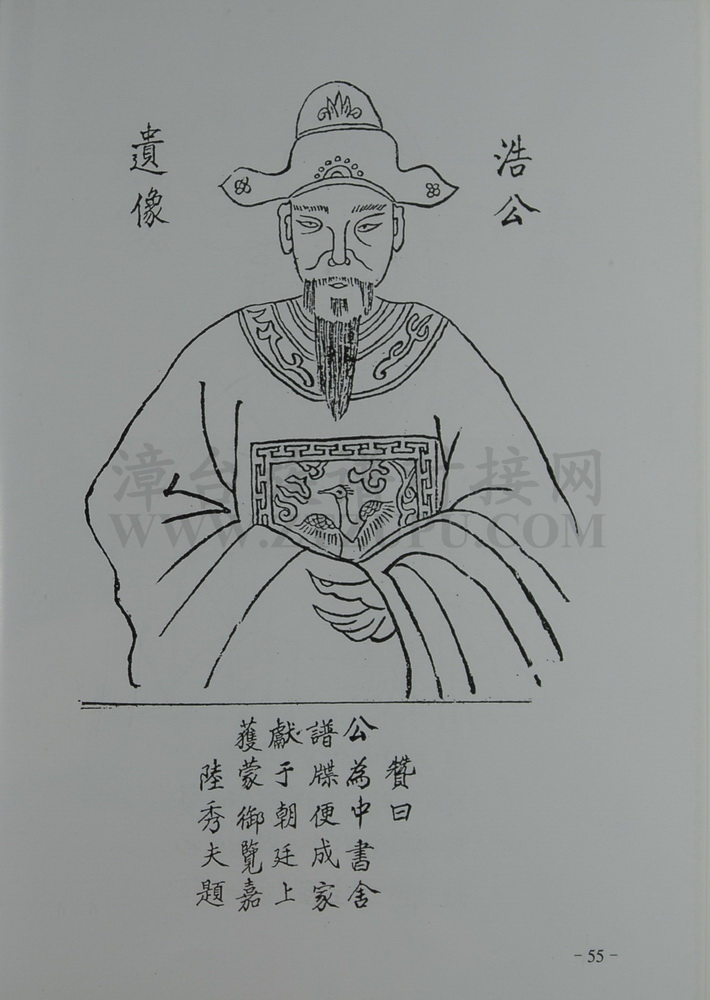 浩公
遺像
贊曰
公為中書舍
譜牒便成家
獻于朝廷上
獲蒙御覽嘉
陸秀夫題
漳台
接网
WWW.Z
U.COM
- 55 -